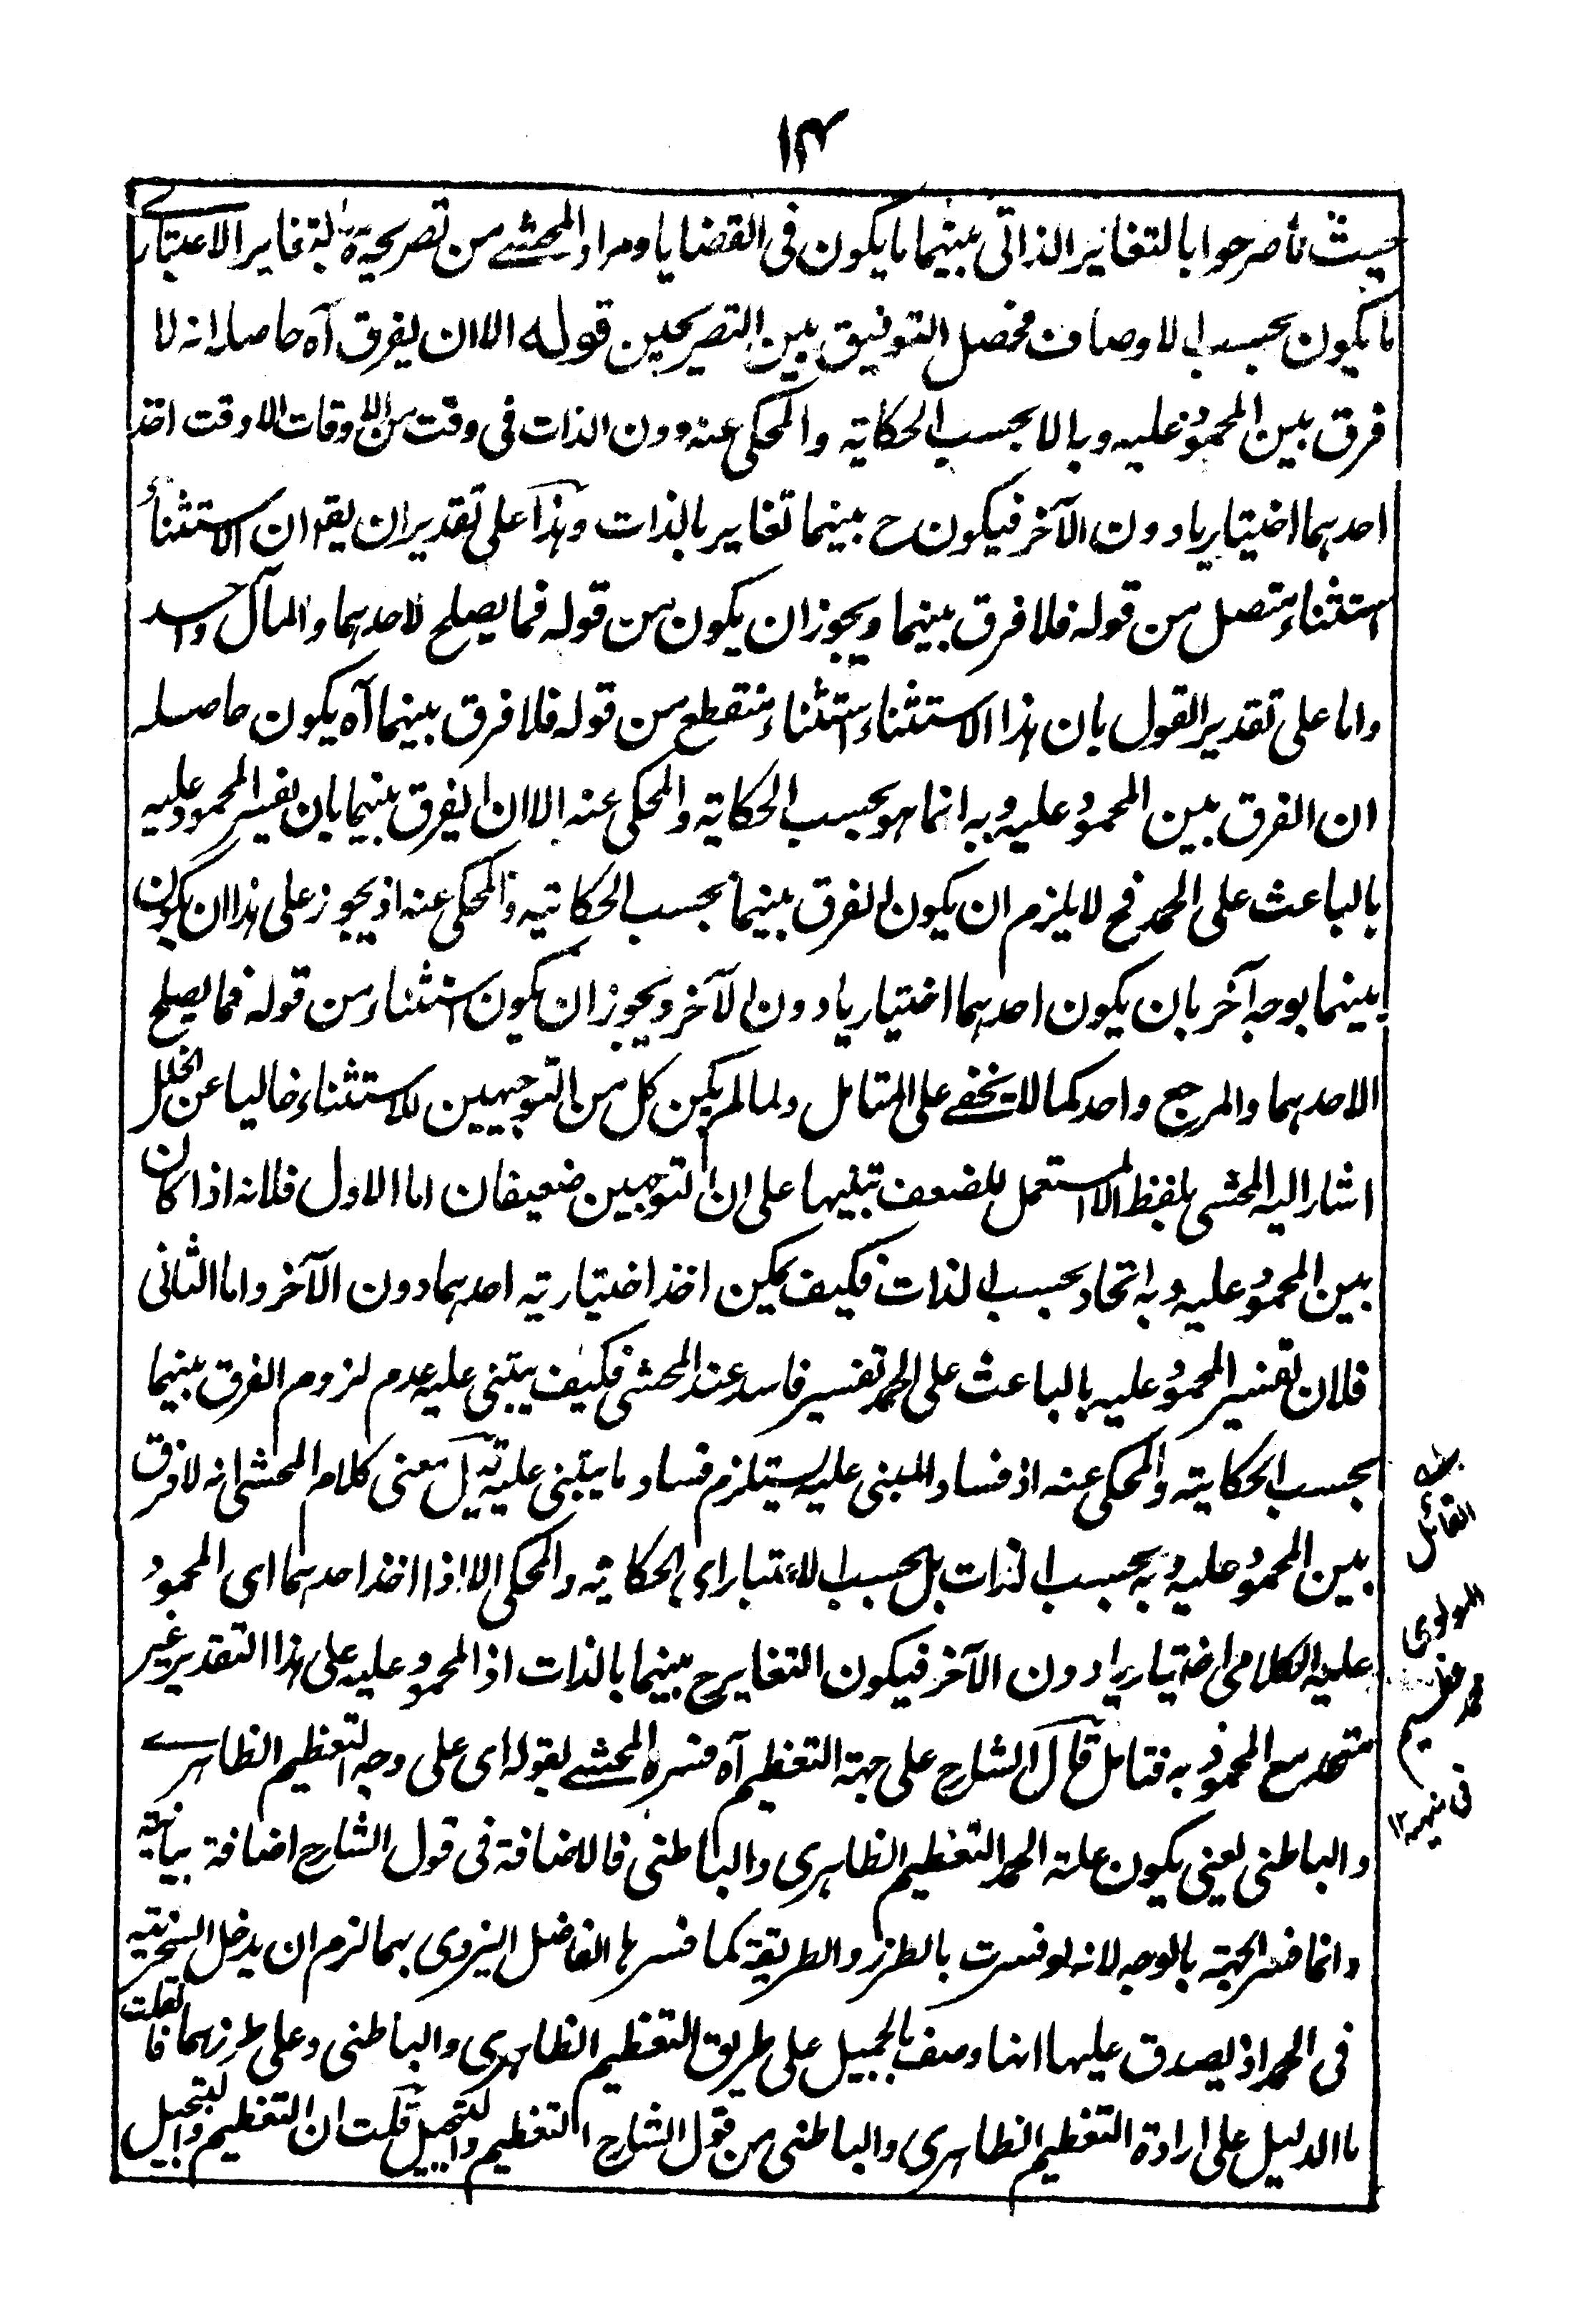 ١٤
حيث ما صرحوا بالتغاير الذاتى بينهما ما يكون فى القضايا ومراد المحشے من تصريحهم بالتغاير الاعتبارے
ما يكون بحسب الاوصاف فحصل التوفيق بين التصريحين قوله الا ان يفرق آه حاصله انه لا
فرق بين المحمود عليه وبه الا بحسب الحكاية والمحكى عنه دون الذات فى وقت من الاوقات الا وقت اخذ
احدهما اختياريا دون الآخر فيكون ح بينهما تغاير بالذات وهذا على تقدير ان يقو ان الاستثناء
استثناء متصل من قوله فلا فرق بينهما ويجوز ان يكون من قوله فما يصلح لاحدهما والمآل واحد
واما على تقدير القول بان هذا الاستثناء استثناء منقطع من قوله فلا فرق بينهما آه يكون حاصله
ان الفرق بين المحمود عليه وبه انما هو بحسب الحكاية والمحكى عنه الا ان يفرق بينهما بان يفسر المحمود عليه
بالباعث على الحمد فح لا يلزم ان يكون الفرق بينهما بحسب الحكاية والمحكى عنه اذ يجوز على هذا ان يكون
بينهما بوجه آخر بان يكون احدهما اختياريا دون الآخر ويجوز ان يكون استثناء من قوله فما يصلح
الاحدهما والمرجع واحد كما لا يخفے على المتامل ولما لم يكن كل من التوجيهين للاستثناء خاليا عن الخلل
اشار اليه المحشى بلفظ الا المستعمل للضعف تنبيها على ان التوجيهين ضعيفان اما الاول فلانه اذا كان
بين المحمود عليه وبه اتحاد بحسب الذات فكيف يمكن اخذ اختيارية احدهما دون الآخر واما الثانى
فلان تفسير المحمود عليه بالباعث على الحمد تفسير فاسد عند المحشى فكيف يبتنى عليه عدم لزوم الفرق بينهما
بحسب الحكاية والمحكى عنه اذ فساد المبنى عليه يستلزم فساد ما يبتنى عليه قيل معنى كلام المحشى انه لا فرق
بين المحمود عليه وبه بحسب الذات بل بحسب الاعتبار اى الحكاية والمحكى الا اذا اخذ احدهما اى المحمود
عليه الكلامى اختياريا دون الآخر فيكون التغاير ح بينهما بالذات اذ المحمود عليه على هذا التقدير غير
متحد مع المحمود به فتامل قال الشارح على جهة التعظيم آه فسره المحشے بقوله اى على وجه التعظيم الظاهرے
والباطنى يعنى يكون علته الحمد التعظيم الظاهرى والباطنى فالاضافة فى قول الشارح اضافة بيانية
وانما فسر الجهة بالوجه لانه لو فسرت بالطرز والطريقة كما فسرها الفاضل اليزدى بهما لزم ان يدخل السخرية
فى الحمد اذ يصدق عليها انها وصف بالجميل على طريق التعظيم الظاهرى والباطنى وعلى طرزهما فان قلت
ما الدليل على ارادة التعظيم الظاهرى والباطنى من قول الشارح التعظيم والتبجيل قلت ان التعظيم والتبجيل
القائل
المولوى
محمد عظيم
فى منهيه ١٢